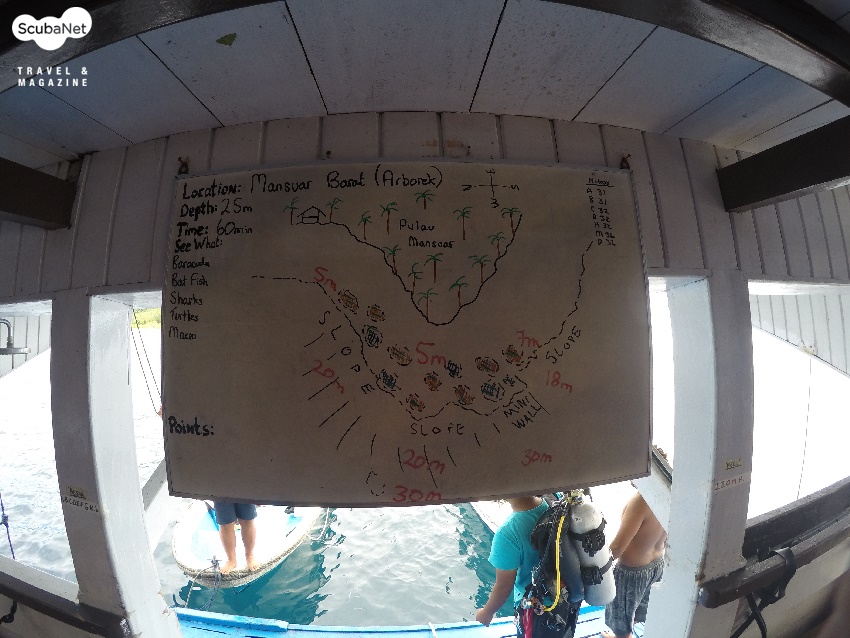 ScubaNet
TRAVEL &
MAGAZINE
Location: Mansuar Barat (Arborek)
Depth: 25m
Time: 60min
See What:
Baracuda
Bat Fish
Sharks
Turtles
Macro
Points:
Pulau
Mansuar
5m
5m
7m
SLOPE
20m
SLOPE
18m
MINI
WALL
SLOPE
20m
30m
30m
A 32
B 31
C 32